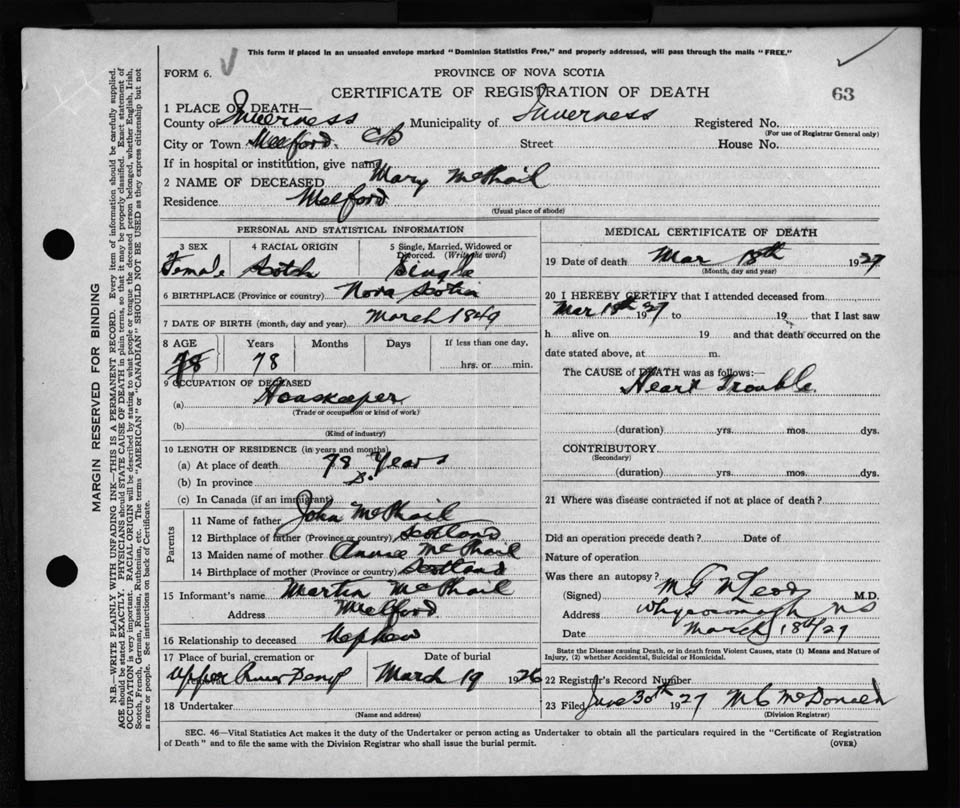 This form if placed in an unsealed envelope marked "Dominion Statistics Free," and properly addressed, will pass through the mails "FREE."
FORM 6.
PROVINCE OF NOVA SCOTIA
CERTIFICATE OF REGISTRATION OF DEATH
63
1 PLACE OF DEATH—
County of Inverness Municipality of Inverness Registered No.
(For use of Registrar General only)
City or Town Melford. CB Street House No.
If in hospital or institution, give name
2 NAME OF DECEASED Mary McPhail
Residence Melford
(Usual place of abode)
PERSONAL AND STATISTICAL INFORMATION
3 SEX 4 RACIAL ORIGIN 5 Single, Married, Widowed or Divorced. (Write the word)
Female Scotch Single
6 BIRTHPLACE (Province or country) Nova Scotia
7 DATE OF BIRTH (month, day and year) March 1849
8 AGE Years Months Days If less than one day,
78 78 hrs. or min.
9 OCCUPATION OF DECEASED
(a) Houskeeper
(Trade or occupation or kind of work)
(b)
(Kind of industry)
10 LENGTH OF RESIDENCE (in years and months)
(a) At place of death 78 Years
(b) In province
(c) In Canada (if an immigrant)
Parents
11 Name of father John McPhail
12 Birthplace of father (Province or country) Scotland
13 Maiden name of mother Annie McPhail
14 Birthplace of mother (Province or country) Scotland
15 Informant's name Martin McPhail
Address Melford
16 Relationship to deceased Nephew
17 Place of burial, cremation or removal Date of burial
Upper River Denys March 19 1926
18 Undertaker
(Name and address)
MEDICAL CERTIFICATE OF DEATH
19 Date of death Mar 18th 1927
(Month, day and year)
20 I HEREBY CERTIFY that I attended deceased from
Mar 18th 1927 to 19 that I last saw
h alive on 19 and that death occurred on the
date stated above, at m.
The CAUSE of DEATH was as follows:—
Heart Trouble
(duration) yrs. mos. dys.
CONTRIBUTORY
(Secondary)
(duration) yrs. mos. dys.
21 Where was disease contracted if not at place of death?
Did an operation precede death? Date of
Nature of operation
Was there an autopsy?
(Signed) M G McLeod M.D.
Address Whycocomagh NS
Date March 18th/27
State the Disease causing Death, or in death from Violent Causes, state (1) Means and Nature of
Injury, (2) whether Accidental, Suicidal or Homicidal.
22 Registrar's Record Number
23 Filed June 30th 1927 M C McDonald
(Division Registrar)
SEC. 46—Vital Statistics Act makes it the duty of the Undertaker or person acting as Undertaker to obtain all the particulars required in the "Certificate of Registration
of Death" and to file the same with the Division Registrar who shall issue the burial permit.
(OVER)
MARGIN RESERVED FOR BINDING
N.B.—WRITE PLAINLY WITH UNFADING INK—THIS IS A PERMANENT RECORD. Every item of information should be carefully supplied.
AGE should be stated EXACTLY. PHYSICIANS should STATE CAUSE OF DEATH in plain terms, so that it may be properly classified. Exact statement of
OCCUPATION is very important. RACIAL ORIGIN will be described by stating to what people or tongue the deceased person belonged, whether English, Irish,
Scotch, French, German, Russian, Ruthenian, etc. The terms "AMERICAN" or "CANADIAN" SHOULD NOT BE USED as they express citizenship but not
a race or people. See instructions on back of Certificate.